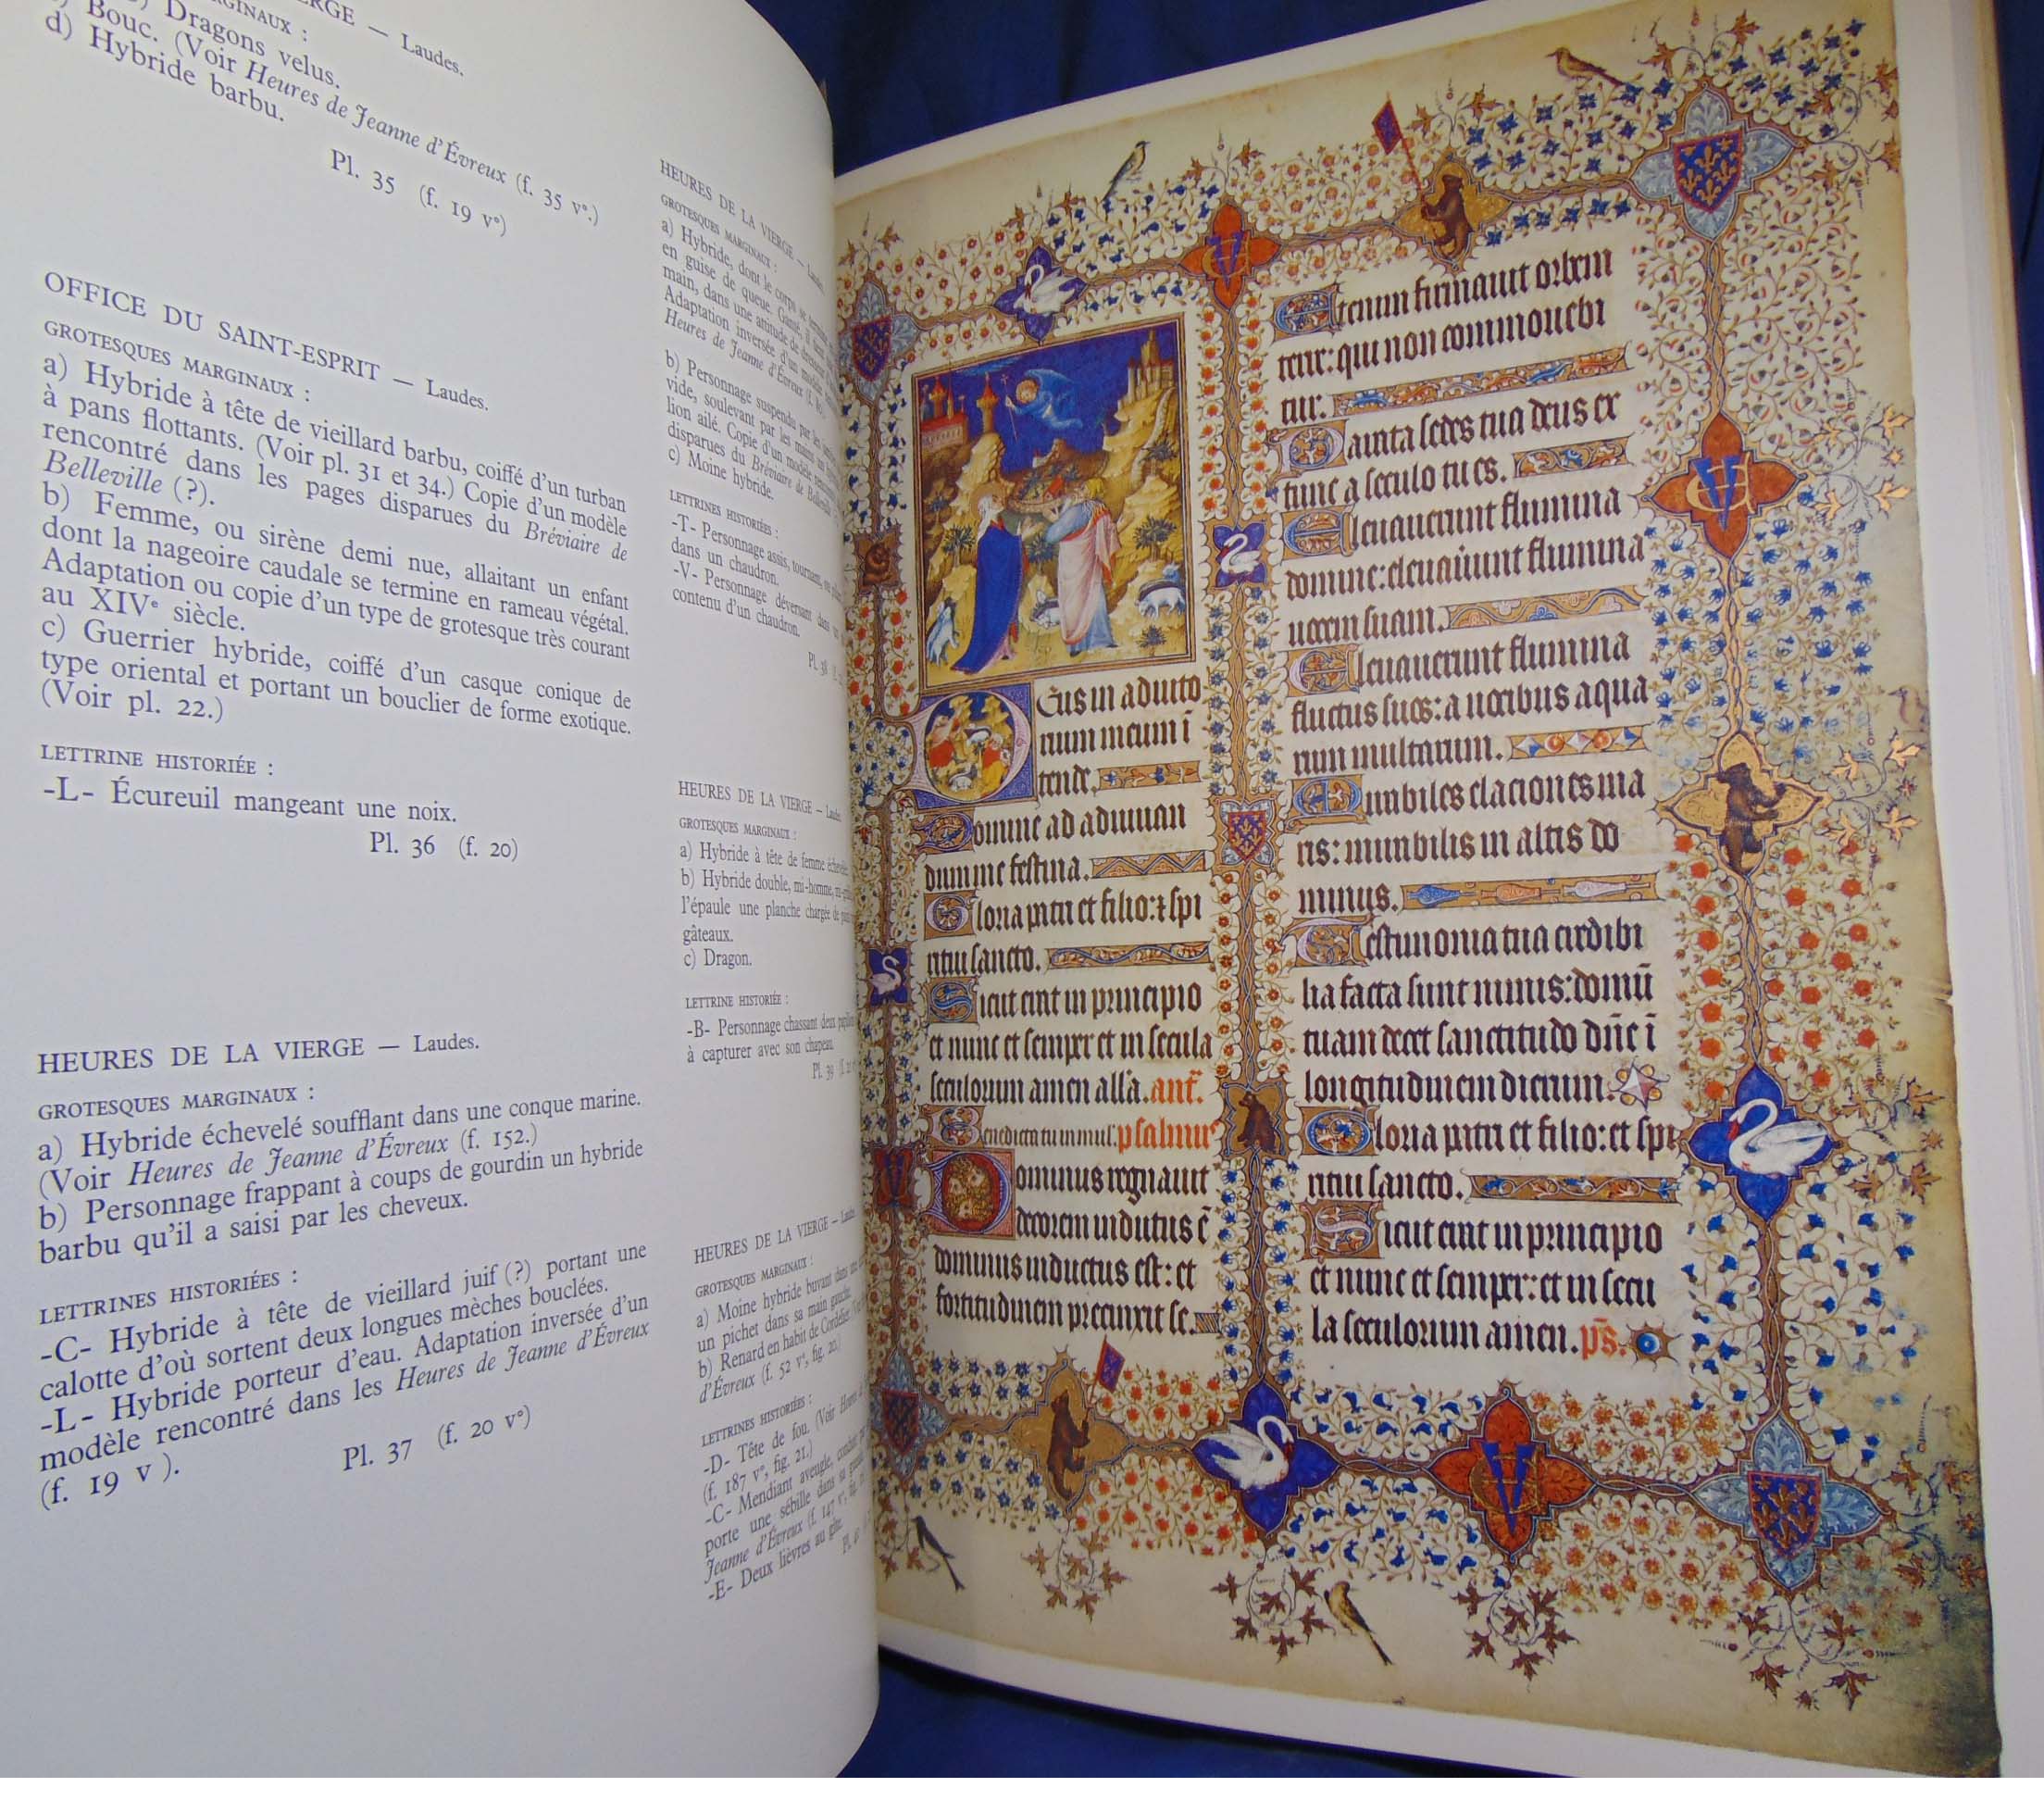 VIERGE — Laudes.
MARGINAUX :
Dragons velus.
Bouc. (Voir Heures de Jeanne d'Évreux (f. 35 v°.)
d) Hybride barbu.
Pl. 35 (f. 19 v°)
OFFICE DU SAINT-ESPRIT — Laudes.
GROTESQUES MARGINAUX :
a) Hybride à tête de vieillard barbu, coiffé d'un turban
à pans flottants. (Voir pl. 31 et 34.) Copie d'un modèle
rencontré dans les pages disparues du Bréviaire de
Belleville (?).
b) Femme, ou sirène demi nue, allaitant un enfant
dont la nageoire caudale se termine en rameau végétal.
Adaptation ou copie d'un type de grotesque très courant
au XIVe siècle.
c) Guerrier hybride, coiffé d'un casque conique de
type oriental et portant un bouclier de forme exotique.
(Voir pl. 22.)
LETTRINE HISTORIÉE :
-L- Écureuil mangeant une noix.
Pl. 36 (f. 20)
HEURES DE LA VIERGE — Laudes.
GROTESQUES MARGINAUX :
a) Hybride échevelé soufflant dans une conque marine.
(Voir Heures de Jeanne d'Évreux (f. 152.)
b) Personnage frappant à coups de gourdin un hybride
barbu qu'il a saisi par les cheveux.
LETTRINES HISTORIÉES :
-C- Hybride à tête de vieillard juif (?) portant une
calotte d'où sortent deux longues mèches bouclées.
-L- Hybride porteur d'eau. Adaptation inversée d'un
modèle rencontré dans les Heures de Jeanne d'Évreux
(f. 19 v ).
Pl. 37 (f. 20 v°)
HEURES DE LA VIERGE — Laudes.
GROTESQUES MARGINAUX :
a) Hybride, dont le corps se termine
en guise de queue. Ganté, il tient
main, dans une attitude de
Adaptation inversée d'un modèle
Heures de Jeanne d'Évreux (f.
b) Personnage suspendu par les
vide, soulevant par les mains un
lion ailé. Copie d'un modèle
disparues du Bréviaire de Belleville
c) Moine hybride.
LETTRINES HISTORIÉES :
-T- Personnage assis, tournant,
dans un chaudron.
-V- Personnage déversant dans un
contenu d'un chaudron.
Pl. 38
HEURES DE LA VIERGE — Laudes
GROTESQUES MARGINAUX :
a) Hybride à tête de femme
b) Hybride double, mi-homme,
l'épaule une planche chargée de
gâteaux.
c) Dragon.
LETTRINE HISTORIÉE :
-B- Personnage chassant deux
à capturer avec son chapeau.
Pl. 39
HEURES DE LA VIERGE — Laudes
GROTESQUES MARGINAUX :
a) Moine hybride buvant dans
un pichet dans sa main gauche.
b) Renard en habit de Cordelier.
d'Évreux (f. 52 v°, fig. 20.)
LETTRINES HISTORIÉES :
-D- Tête de fou. (Voir Heures
(f. 187 v°, fig. 21.)
-C- Mendiant aveugle, conduit
porte une sébille dans sa
Jeanne d'Évreux (f. 147 v°,
-E- Deux lièvres au gîte.
Deus in adiuto
rium meum ī
tende.
Domine ad adiuuan
dum me festina.
Gloria patri et filio: ⁊ spi
ritui sancto.
Sicut erat in principio
et nunc et semper et in secula
seculorum amen alla. anī.
Benedicta tu in mul. psalmus
Dominus regnauit
decorem indutus ē
dominus indutus est: et
fortitudinem precinxit se.
Etenim firmauit orbem
terre: qui non commouebi
tur.
Parata sedes tua deus ex
tunc a seculo tu es.
Eleuauerunt flumina
domine: eleuauerunt flumina
uocem suam.
Eleuauerunt flumina
fluctus suos: a uocibus aqua
rum multarum.
Mirabiles elaciones ma
ris: mirabilis in altis do
minus.
Testimonia tua credibi
lia facta sunt nimis: domū
tuam decet sanctitudo dn̄e ī
longitudinem dierum.
Gloria patri et filio: et spi
ritui sancto.
Sicut erat in principio
et nunc et semper: et in secu
la seculorum amen. p̄s.